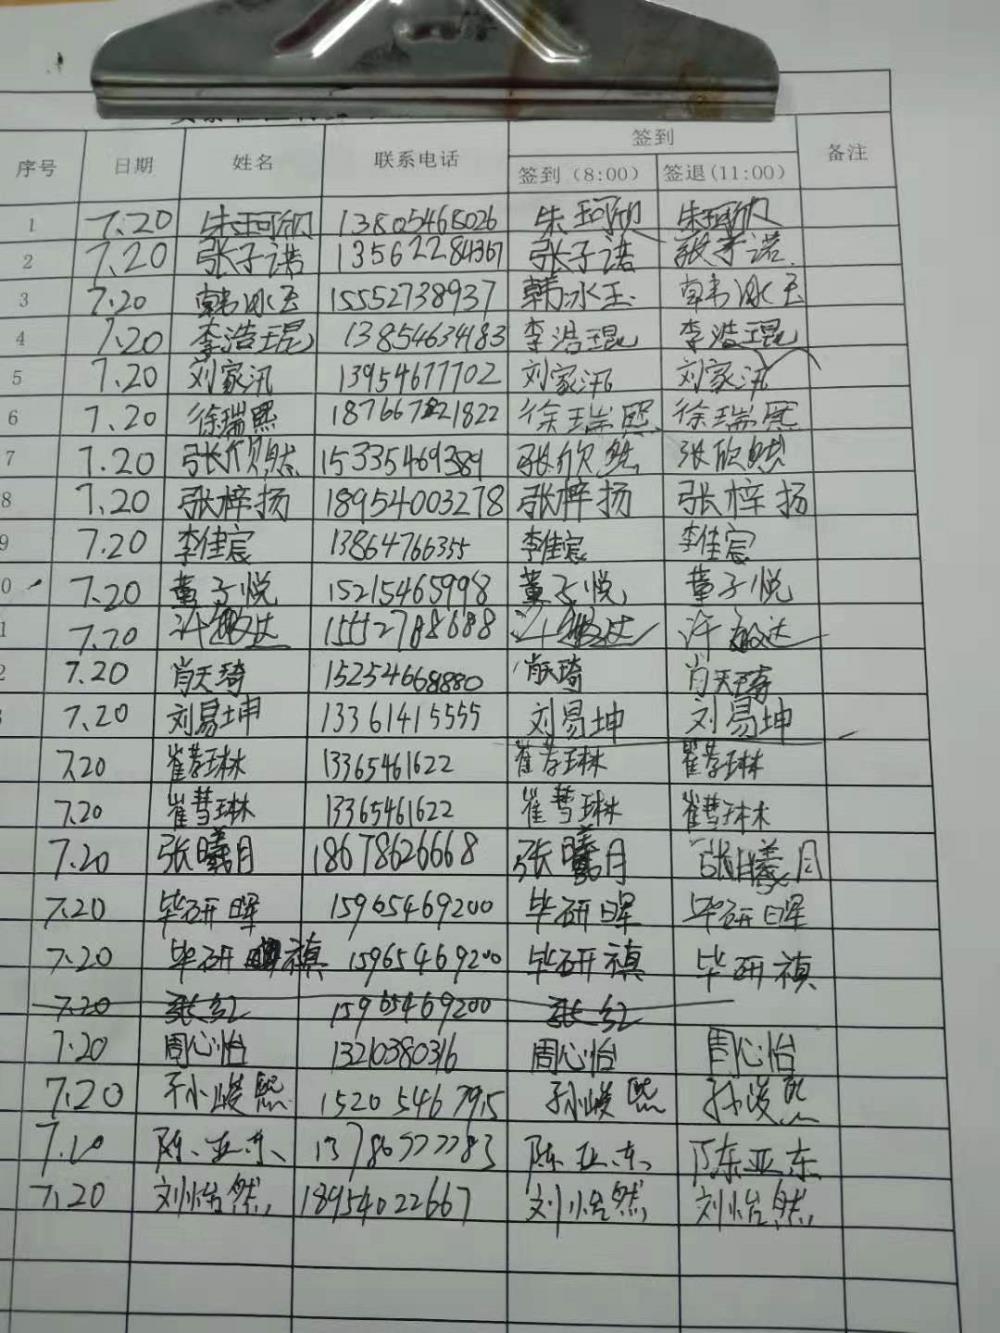 签到
序号 日期 姓名 联系电话 签到（8:00） 签退(11:00) 备注
1 7.20 朱珂欣 13805468026 朱珂欣 朱珂欣
2 7.20 张子诺 13562284367 张子诺 张子诺
3 7.20 韩冰玉 15552738937 韩冰玉 韩冰玉
4 7.20 李浩琨 13854634183 李浩琨 李浩琨
5 7.20 刘家汛 13954677702 刘家汛 刘家汛
6 7.20 徐瑞熙 徐瑞熙 徐瑞熙
7 7.20 张欣然 15335469389 张欣然 张欣然
8 7.20 张梓扬 18954003278 张梓扬 张梓扬
9 7.20 李佳宸 13864766355 李佳宸 李佳宸
0 7.20 董子悦 15215465998 董子悦 董子悦
1 7.20 许敏达 15552788688 许敏达 许敏达
2 7.20 肖天琦 肖天琦 肖天琦
7.20 刘易坤 13361415555 刘易坤 刘易坤
7.20 13365461622
7.20 崔彗琳 13365461622 崔彗琳 崔彗琳
7.20 张曦月 18678626668 张曦月 张曦月
7.20 毕研晖 15965469200 毕研晖 毕研晖
7.20 毕研禛 15965469200 毕研禛 毕研禛
7.20 张红 15965469200 张红
7.20 周心怡 13210380316 周心怡 周心怡
7.20 孙峻熙 15205467915 孙峻熙 孙峻熙
陈亚东 陈亚东 陈亚东
7.20 刘怡然 18954022667 刘怡然 刘怡然